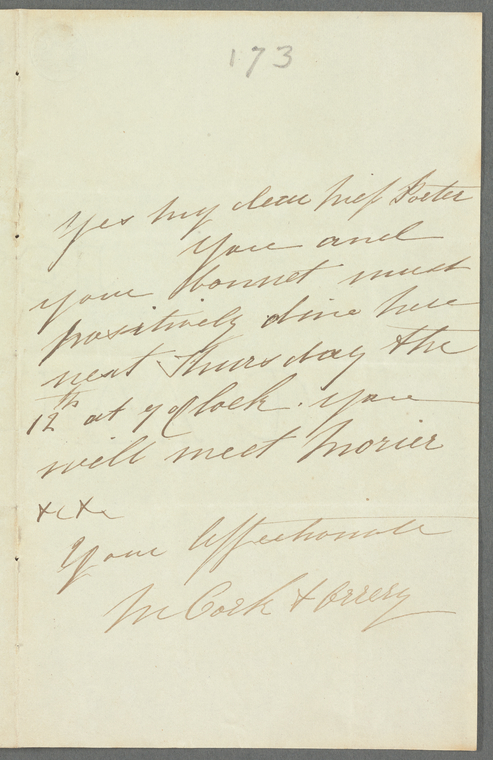 173
Yes my dear Miss Porter
you and
your bonnet must
positively dine here
next Thursday the
12th at 7 oClock. you
will meet Morier
&c &c
Your Affectionate
M Cork & Orrery